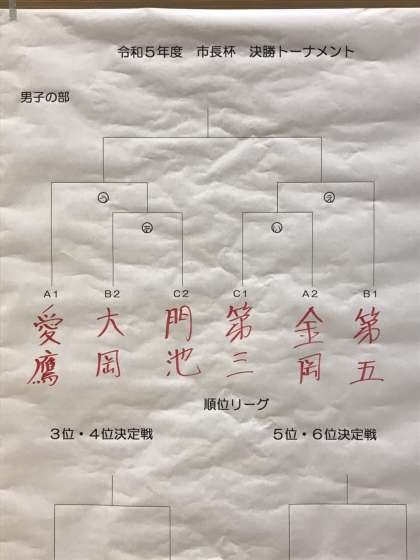 令和5年度 市長杯 決勝トーナメント
男子の部
う え
あ い
A1 B2 C2 C1 A2 B1
愛鷹 大岡 門池 第三 金岡 第五
順位リーグ
3位・4位決定戦 5位・6位決定戦